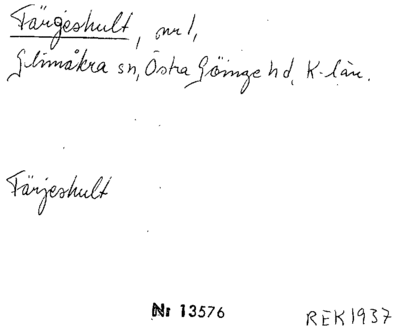 Färgeshult, nr 1,
Glimåkra sn, Östra Göinge hd, K-län.
Färjeshult
Nr 13576
REK 1937